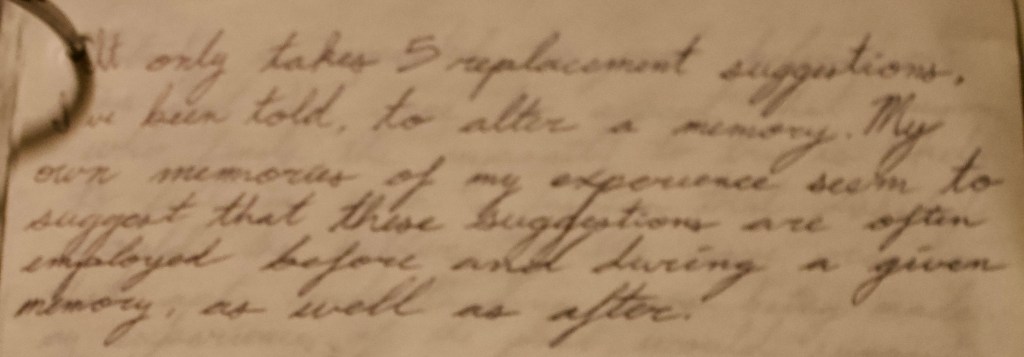 It only takes 5 replacement suggestions,
I've been told, to alter a memory. My
own memories of my experience seem to
suggest that these suggestions are often
employed before and during a given
memory, as well as after.